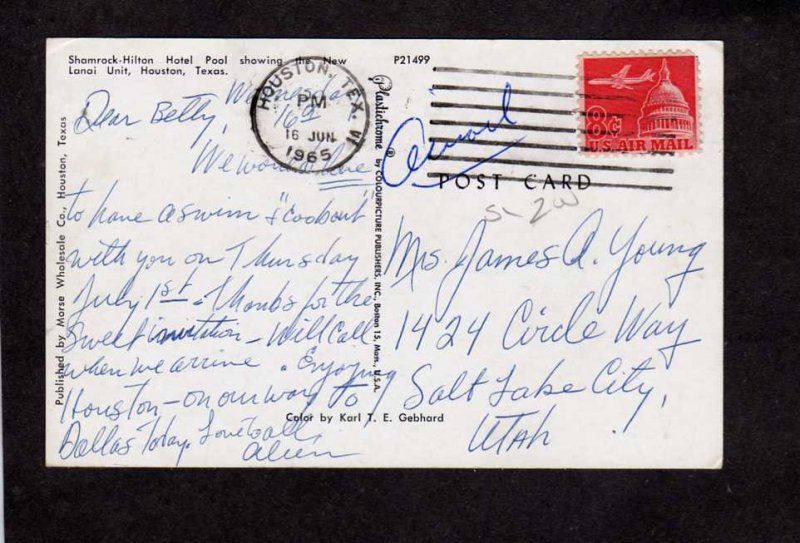 Shamrock-Hilton Hotel Pool showing the New
Lanai Unit, Houston, Texas.
P21499
HOUSTON, TEX.
PM
16 JUN
1965
8c
U.S. AIR MAIL
Airmail
POST CARD
Wednesday
16th
Dear Betty,
We would love
to have a swim & "cookout"
with you on Thursday
July 1st. Thanks for the
sweet invitation - Will call
when we arrive. Enjoying
Houston - on our way to
Dallas today. Love to all
Mrs. James A. Young
1424 Circle Way
Salt Lake City,
Utah
Published by Morse Wholesale Co., Houston, Texas
Plastichrome ® by COLOURPICTURE PUBLISHERS, INC., Boston 15, Mass., U.S.A.
Color by Karl T. E. Gebhard